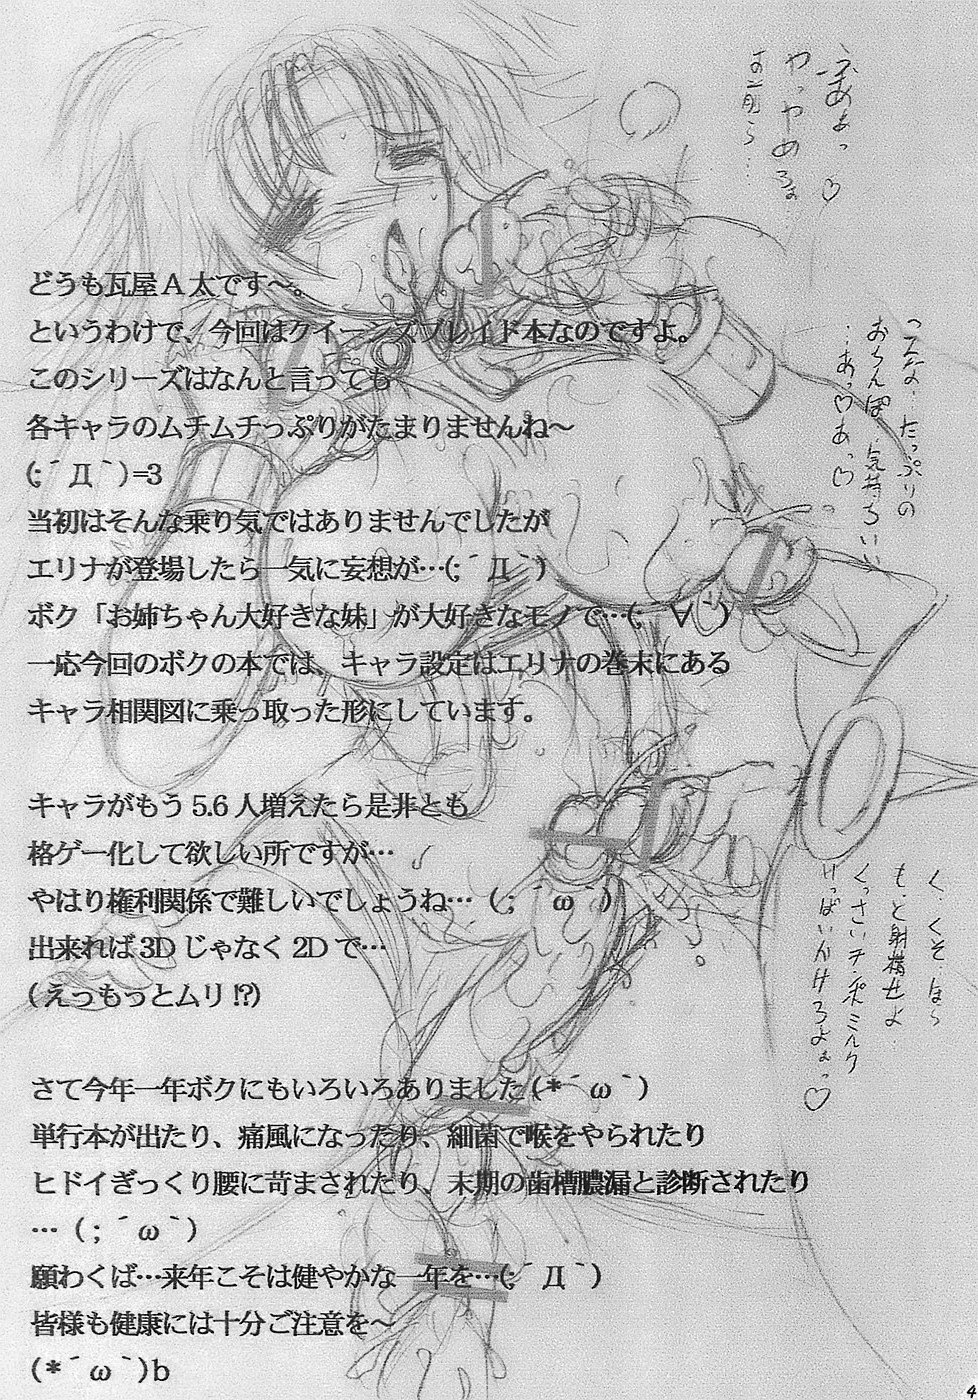 どうも瓦屋A太です～。
というわけで、今回はクイーンズブレイド本なのですよ。
このシリーズはなんと言っても
各キャラのムチムチっぷりがたまりませんね～
(;´Д｀)=3
当初はそんな乗り気ではありませんでしたが
エリナが登場したら一気に妄想が…(;´Д｀)
ボク「お姉ちゃん大好きな妹」が大好きなモノで…(;´∀｀)
一応今回のボクの本では、キャラ設定はエリナの巻末にある
キャラ相関図に乗っ取った形にしています。
キャラがもう5.6人増えたら是非とも
格ゲー化して欲しい所ですが…
やはり権利関係で難しいでしょうね…(；´ω｀)
出来れば3Dじゃなく2Dで…
(えっもっとムリ!?)
さて今年一年ボクにもいろいろありました(*´ω｀)
単行本が出たり、痛風になったり、細菌で喉をやられたり
ヒドイぎっくり腰に苛まされたり、末期の歯槽膿漏と診断されたり
…(；´ω｀)
願わくば…来年こそは健やかな一年を…(;´Д｀)
皆様も健康には十分ご注意を～
(*´ω｀)b
4